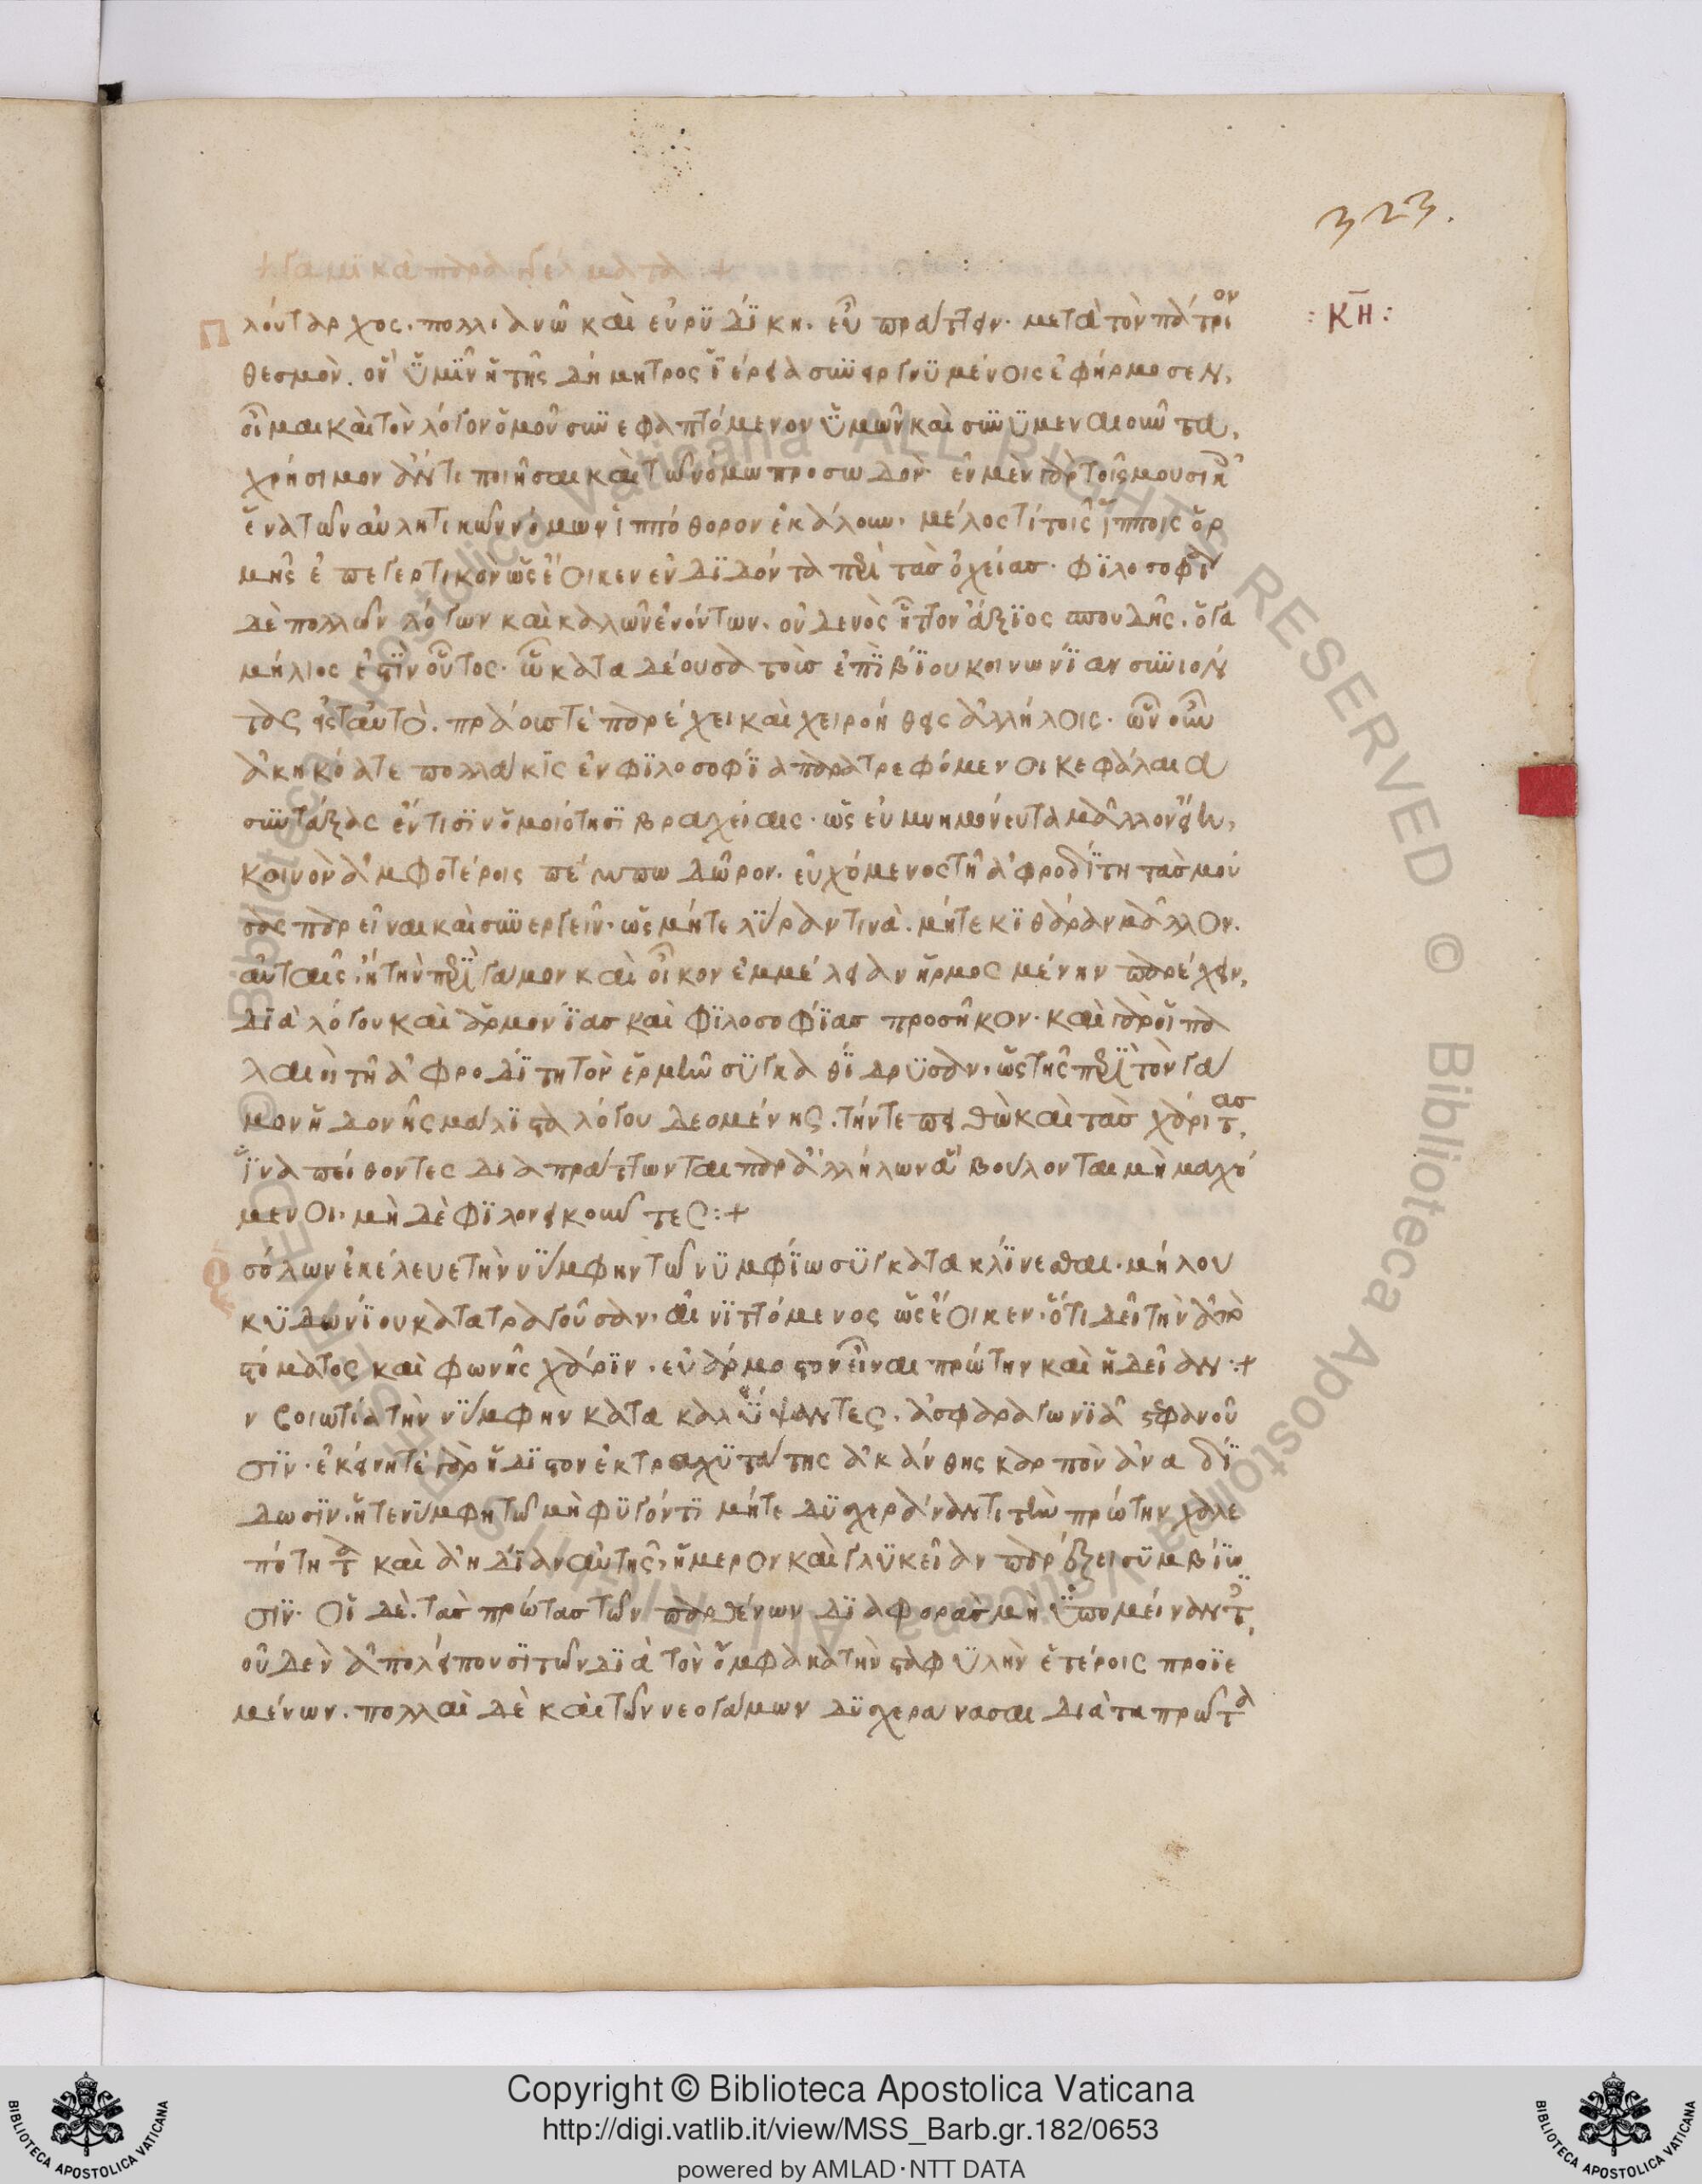 323.
+ γαμικὰ παραγγέλματα :+
: κη :
Πλούταρχος. πολλιανῶ καὶ εὐρϋδΐκη. εὖ πράττειν. μετὰ τὸν πάτριον
θεσμὸν. ὃν ὑμῖν ἡ τῆς δήμητρος ἱέρεια συνειργνυμένοις ἐφήρμοσεν,
οἶμαι καὶ τὸν λόγον ὁμοῦ συνεφαπτόμενον ὑμῶν καὶ συνυμεναιοῦντα,
χρήσιμον ἄν τι ποιῆσαι καὶ τῶ νόμω προσωδὸν· ἐν μὲν γὰρ τοῖς μουσικοῖς
ἕνα τῶν αὐλητικῶν νόμων ἱππόθορον ἐκάλουν. μέλος τί τοῖς ἵπποις ὁρ
μῆς ἐπεγερτικὸν ὡς ἔοικεν ἐνδϊδόντα περὶ τὰσ ὀχείασ. φϊλοσοφία
δὲ πολλῶν λόγων καὶ καλῶν ἐνόντων. οὐδενὸς ἧττον ἄξϊος σπουδῆς. ὁ γα
μήλιος ἐστὶν οὗτος. ὧ κατάδουσα τοὺσ ἐπὶ βΐου κοινωνΐαν συνιόν
τας εἰς ταυτὸ. πράουστὲ παρέχει καὶ χειροήθεις ἀλλήλοις. ὧν οὖν
ἀκηκόατε πολλάκϊς ἐν φϊλοσοφΐα παρατρεφόμενοι κεφάλαια
συντάξας ἔν τισϊν ὁμοιότησϊ βραχείαις. ὡς εὐμνημόνευτα μᾶλλον εἴη,
κοινὸν ἀμφοτέροις πέμπω δῶρον. εὐχόμενος τῆ ἀφροδΐτη τὰσ μού
σας παρεῖναι καὶ συνεργεῖν. ὡς μήτε λϋραν τινὰ. μήτε κϊθάραν μᾶλλον.
αὐταῖς. ἢ τὴν περὶ γάμον καὶ οἶκον ἐμμέλειαν ἡρμοσμένην παρέχειν,
δϊὰ λόγου καὶ ἁρμονΐασ καὶ φϊλοσοφΐασ προσῆκον. καὶ γὰρ οἱ πα
λαιοὶ τῆ ἀφροδΐτη τὸν ἑρμῆν συγκαθΐδρυσαν. ὡς τῆς περὶ τὸν γά
μον ἡδονῆς μάλϊστα λόγου δεομένης. τήν τε πειθὼ καὶ τὰσ χάριτασ,
ἵνα πείθοντες διαπράττωνται παρ ἀλλήλων ἃ βούλονται μὴ μαχό
μενοι. μὴ δὲ φϊλονεικοῦντες :+
Ὁ σόλων ἐκέλευε τὴν νϋμφην τῶ νυμφΐω συγκατακλΐνεσθαι. μήλου
κϋδωνΐου κατατραγοῦσαν. αἰνϊττόμενος ὡς ἔοικεν. ὅτι δεῖ τὴν ἀπὸ
στόματος καὶ φωνῆς χάρϊν. εὐάρμοστον εἶναι πρώτην καὶ ἡδεῖαν :+
ν βοιωτία τὴν νϋμφην κατακαλύψαντες. ἀσφαραγωνϊᾶ στεφανοῦ
σϊν. ἐκείνη τὲ γὰρ ἥδϊστον ἐκ τραχϋτάτης ἀκάνθης καρπὸν ἀναδΐ
δωσϊν. ἥ τε νϋμφη τῶ μὴ φϋγόντϊ μήτε δϋσχεράναντι τὴν πρώτην χαλε
πότητα καὶ ἀηδΐαν αὐτῆς, ἥμερον καὶ γλϋκεῖαν παρέξει συμβΐω
σϊν. οἱ δὲ. τὰσ πρώτασ τῶν παρθένων δϊαφορὰσ μὴ ὑπομείναντες,
οὐδὲν ἀπολείπουσϊ τῶν δϊὰ τὸν ὄμφακα τὴν σταφυλὴν ἑτέροις προϊε
μένων. πολλαὶ δὲ καὶ τῶν νεογάμων δϋσχεράνασαι διὰ τα πρῶτα
Copyright © Biblioteca Apostolica Vaticana
http://digi.vatlib.it/view/MSS_Barb.gr.182/0653
powered by AMLAD·NTT DATA